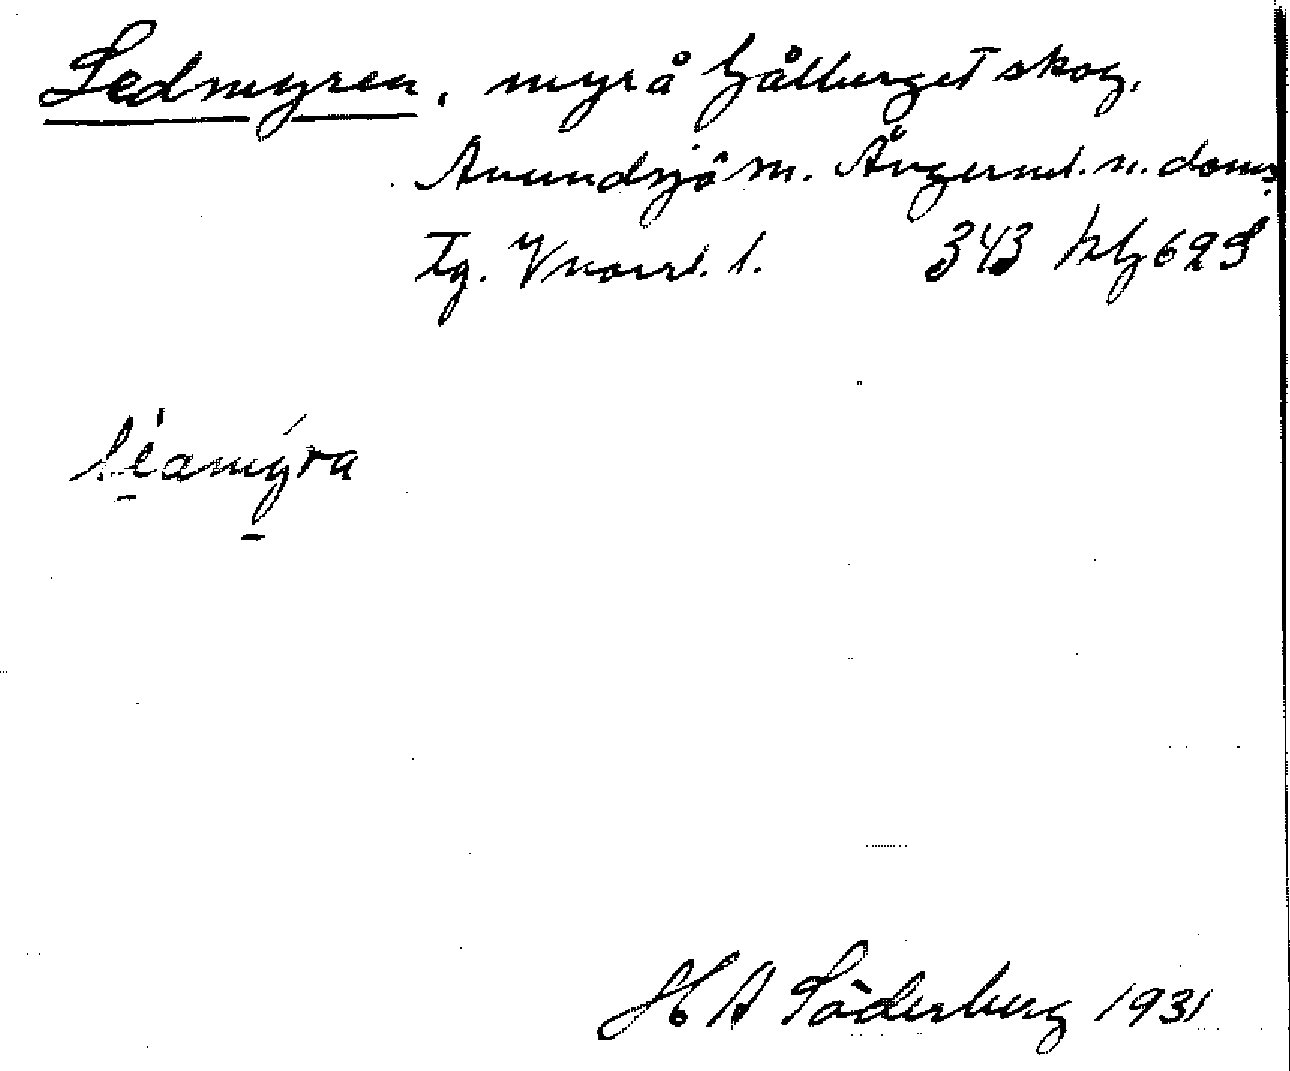 Ledmyren, myr å Gålberget skog,
Anundsjö sn. Ångerml. n. doms.
Tg. Vnorrl. l. 343 hlg 629
lèamýra
H A Söderberg 1931